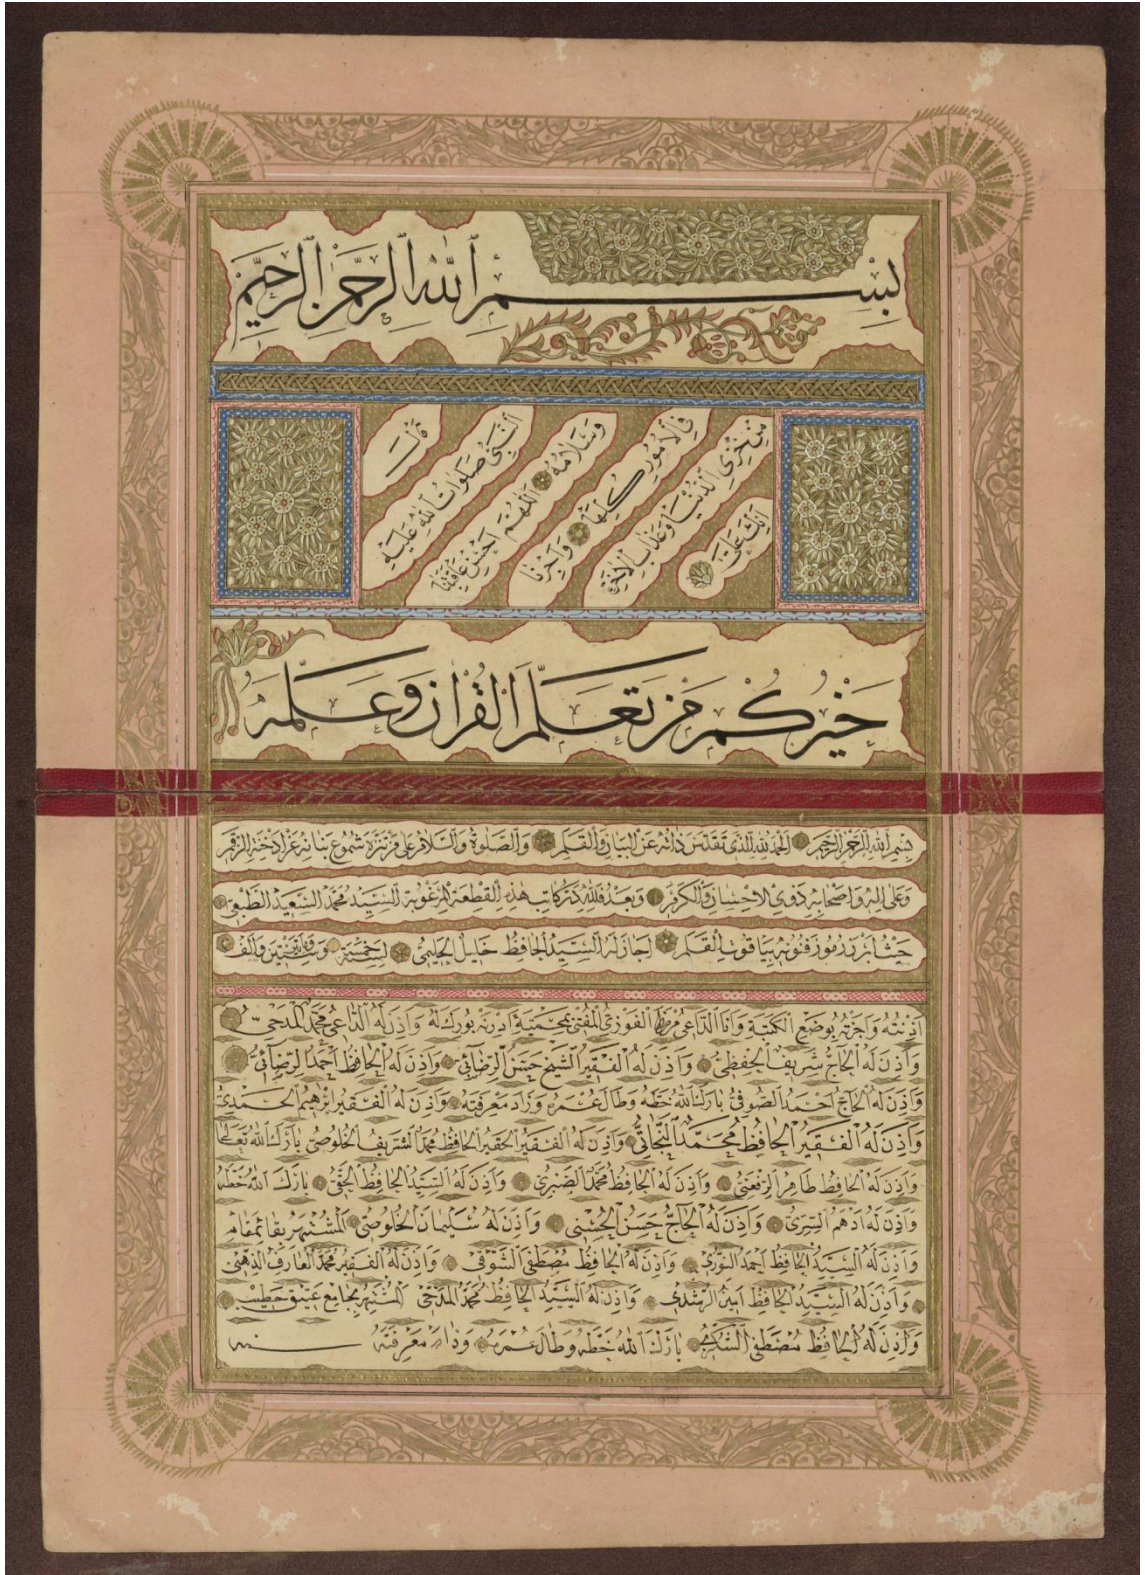 بسم الله الرحمن الرحيم
قال
النبي صلوات الله عليه
وسلامه اللهم احسن عاقبتنا
في الامور كلها واجرنا
من خزي الدنيا وعذاب الاخرة
خيركم من تعلم القران وعلمه
بسم الله الرحمن الرحيم الحمد لله الذي تقدس ذاته عن البيان والقلم والصلوة والسلام على من تنزه شموع بنانه عن ادخنة الرقم
وعلى اله واصحابه ذوي الاحسان والكرم وبعد فلله در كاتب هذه القطعة المرغوبة السيد محمد السعيد
حيث ابرز رموز فنونه بياقوت القلم اجاز له السيد الحافظ خليل الحليمي لسنة خمسة وستين ومأتين والف
اذنته واجزته بوضع الكتبة وانا الداعي الفوزي المفتي بمحمية ادرنه بورك له واذن له الداعي محمد المدحي
واذن له الحاج شريف الحفظي واذن له الفقير الشيخ حسن الرضائي واذن له الحافظ احمد الرضائي
واذن له الحاج احمد الصوفي بارك الله خطه وطال عمره وزاد معرفته واذن له الفقير ابرهيم الحمدي
واذن له الفقير الحافظ محمد النجاتي واذن له الفقير الحقير الحافظ محمد الشريف الخلوصي بارك الله تعالى
واذن له الحافظ طاهر الرفعتي واذن له الحافظ محمد الصبري واذن له السيد الحافظ الحقي بارك الله خطه
واذن له ادهم السري واذن له الحاج حسن الحسني واذن له سليمان الخلوصي المشتهر بقائمقام
واذن له السيد الحافظ احمد النوري واذن له الحافظ مصطفى الشوقي واذن له الفقير محمد العارف الذهني
واذن له السيد الحافظ امين الرشدي واذن له السيد الحافظ محمد المدحي المشتهر بجامع عتيق خطيب
واذن له الحافظ مصطفى الشكري بارك الله خطه وطال عمره وزاد معرفته سنه